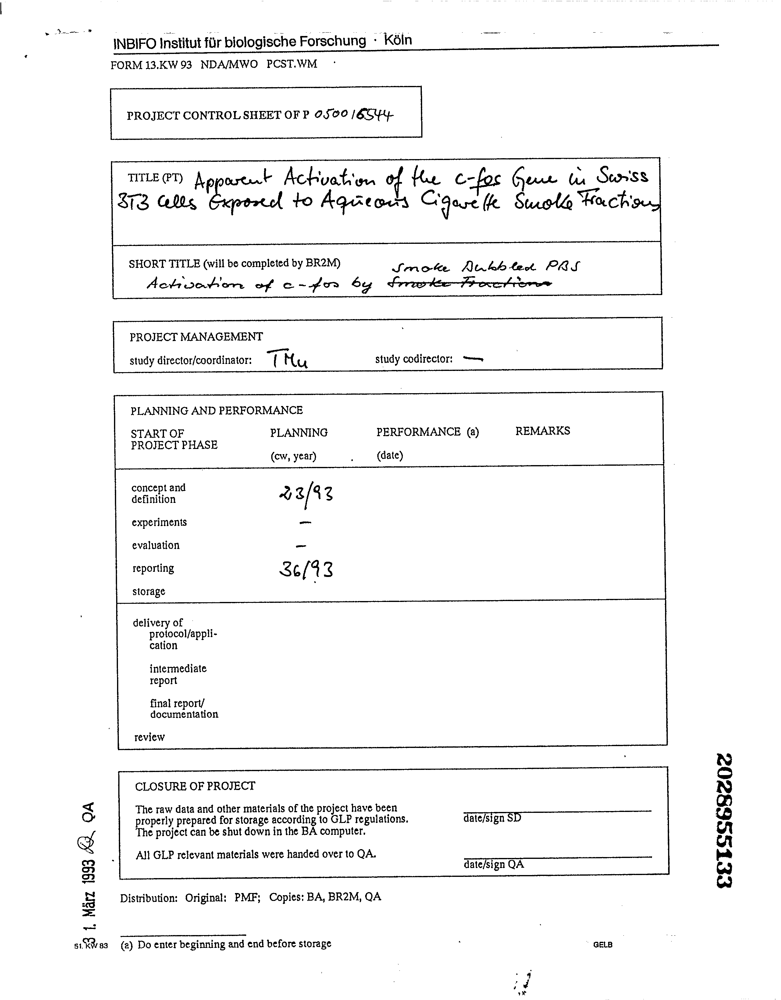 INBIFO Institut für biologische Forschung · Köln
FORM 13.KW 93 NDA/MWO PCST.WM
PROJECT CONTROL SHEET OF P 0500 / 6544
TITLE (PT) Apparent Activation of the c-fos Gene in Swiss
3T3 Cells Exposed to Aqueous Cigarette Smoke Fractions
SHORT TITLE (will be completed by BR2M) Smoke Bubbled PBS
Activation of c-fos by Smoke Fractions
PROJECT MANAGEMENT
study director/coordinator: TMu study codirector: —
PLANNING AND PERFORMANCE
START OF PLANNING PERFORMANCE (a) REMARKS
PROJECT PHASE
(cw, year) (date)
concept and 23/93
definition
experiments —
evaluation —
reporting 36/93
storage
delivery of
protocol/appli-
cation
intermediate
report
final report/
documentation
review
CLOSURE OF PROJECT
The raw data and other materials of the project have been
properly prepared for storage according to GLP regulations. date/sign SD
The project can be shut down in the BA computer.
All GLP relevant materials were handed over to QA.
date/sign QA
Distribution: Original: PMF; Copies: BA, BR2M, QA
(a) Do enter beginning and end before storage
GELB
31. März 1993 QA
2028955133